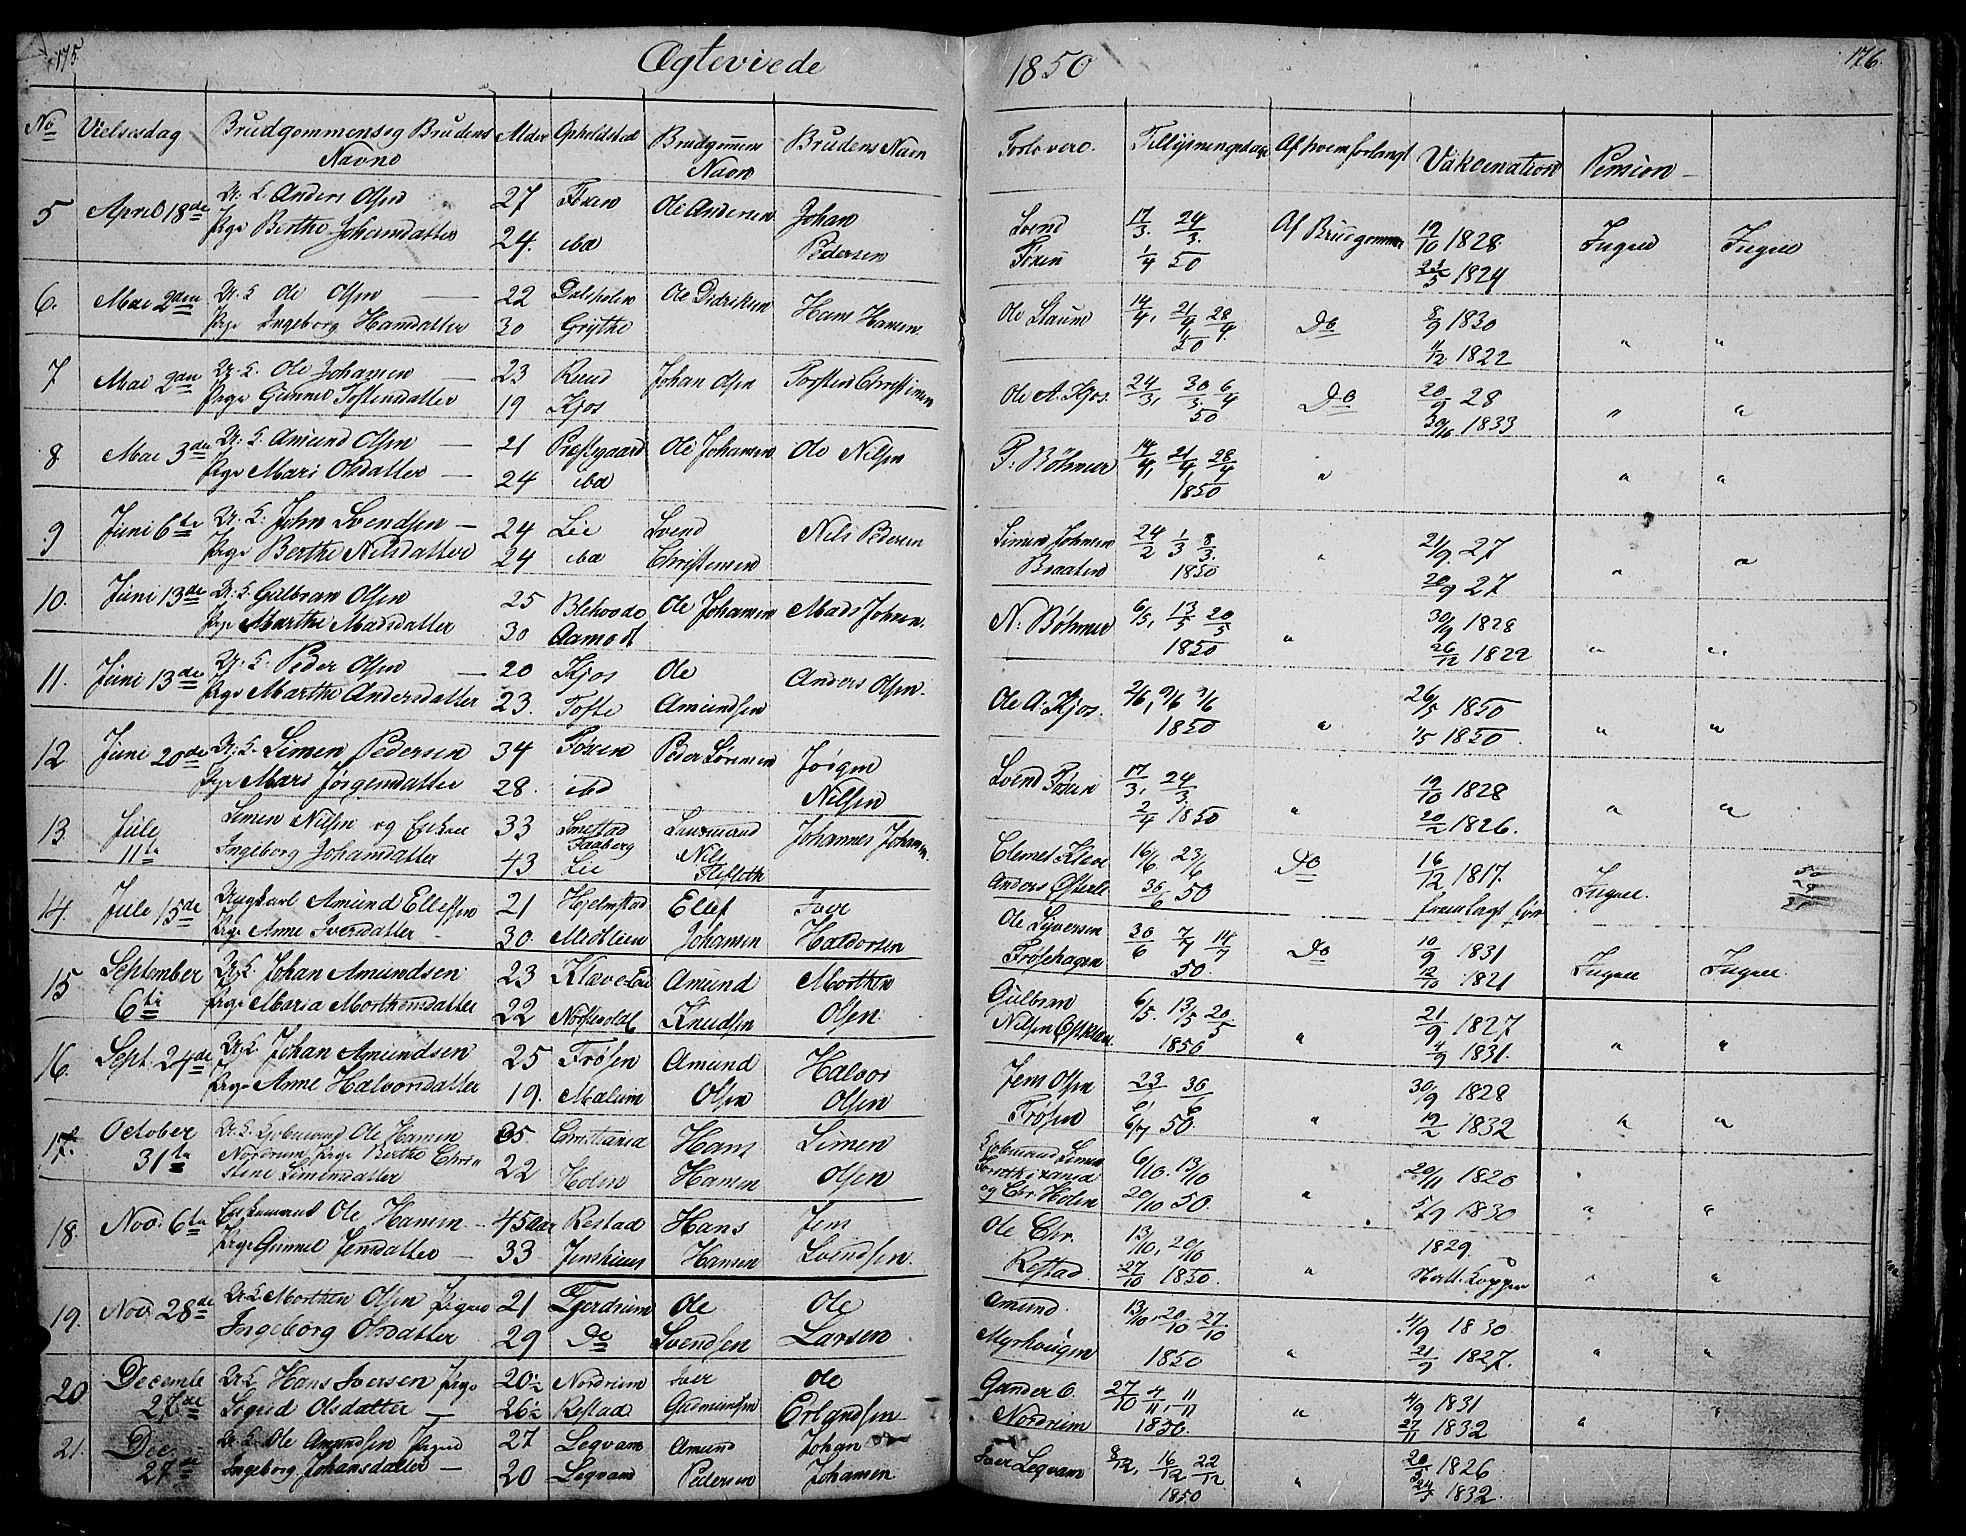 175.
Ægteviede
No
Vielsesdag
Brudgommens og Brudens
Navne
Alder
Opholdsted
Brudgomens
Navn
Brudens Navn
5 April 18de U. K. Anders Olsen 27 Ole Andersen Johan
Pige Berthe Johansdatter 24. ibd Pedersen
6. Mai 2den U. K. Ole Olsen 22 Ole Didriksen Hans Hansen
Pige Ingeborg Hansdatter 30 Grythe
7 Mai 2den U. K. Ole Johansen 23 Ruud Johan Olsen Torsten Christensen
Pige Gunnel Tostensdatter 19 Kjos
8 Mai 3de U. K. Amund Olsen 21 Præstgaard Ole Johansen Ole Nilsen
Pige Mari Olsdatter 24 ibd
9 Juni 6te U. K. John Svendsen 24 Lie Svend Nils Pedersen
Pige Berthe Nilsdatter 24 ibd Christensen
10. Juni 13de U. K. Gulbran Olsen 25 Ole Johansen Mads Johnsen
Pige Marthe Madsdatter 30 Aamodt
11. Juni 13de U. K. Peder Olsen 20 Kjos Ole Anders Olsen
Pige Marthe Andersdatter 23. Tofte Amundsen
12 Juni 20de U. K. Simen Pedersen 34 Foxen Peder Simensen Jørgen
Pige Mari Jørgensdatter 28. ibd Nilsen
13 Jule Simen Nilsen og Enken 33 Smestad Faaberg Nils Johannes Johansen
11te Ingeborg Johansdatter 43 Lie
14. Jule 15de Ungkarl Amund Ellefsen 21 Hjelmstad Ellef Iver
Pige Anne Iversdatter 30. Midtlien Johansen Haldorsen
15 September U. K. Johan Amundsen 23 Amund Morthen
6te Pige Maria Morthensdatter 22 Knudsen Olsen
16. Sept. 24de U. K. Johan Amundsen 25 Frøsen Amund Halvor
Pige Anne Halvorsdatter 19. Mælum Olsen Olsen
17. October U. K. Ole Hansen 35 Christiania Hans Simen
31te Nordrum Pige Berthe Chri-
stine Simensdatter 22 Holen Hansen Olsen
18. Nov. 6te Enkemand Ole Hansen 45 Aar Restad Hans Jens
Pige Gunnel Jensdatter 33 Jenshuus Hansen Svendsen
19. Nov. 28de U. K. Morthen Olsen Pigen 21 Fjerdrum Ole Ole
Ingeborg Olsdatter 29 Do Svendsen Larsen
20 Decembr U. K. Hans Iversen Pige 20½ Nordrum Iver Ole
27de Sigrid Olsdatter 26½ Restad Gudmunsen Erlandsen
21. Dec. U. K. Ole Amundsen Pigen 27 Leqvam Amund Johan
27de Ingeborg Johansdatter 20 Leqvam Pedersen Johansen
1850
176.
Forlovere.
Tillysningsdage
Af hvem forlangt
Vakcination
Pension
Svend 17/3. 24/3. Af Brudgommen 19/10 1828 Ingen Ingen
Foxen 1/4 50 23/5 1824
Ole Staum 14/4, 21/4 28/4 50 Do 8/9 1830 " "
11/12 1822
Ole A. Kjos. 24/3, 30/3. 6/4 50 Do 20/9 28 " "
30/6 1833
P. Bøhmer 14/4, 21/4, 28/4 1850 " " "
Simen Johnsen 24/2 1/3 8/3. " 21/9. 27 " "
Braaten 1850 20/9 27
N. Bøhmer 6/5, 13/5 20/5 1850 " 30/9 1828 " "
26/12 1822
Ole A. Kjos. 2/6, 9/6 9/6 1850 " 26/5 1850 " "
1/5 1850.
Svend Foxen 17/3, 24/3. 2/4 1850 " 19/10 1828 " "
20/2 1826.
16/6 23/6 Do 16/12 1817. Ingen.
Anders 30/6 50
Ole Syversen 30/6 7/7 14/7 50. Do 10/9 1831 Ingen Ingen
Frøshagen 12/10 1821
Gulbran 6/5. 13/5 20/5 " 21/9 1827 " "
Nilsen 1850 4/9 1831.
Jens Olsen 23/6 30/6 " 30/9 1828 " "
Frøsen 6/7 50. 19/2 1832
6/10. 13/10 20/11 1820 "
og Chr. Holen 20/10 50. " 5/9 1830 " "
Ole Chr. 13/10, 20/10 1829.
Restad. 27/10 1850. " " "
Amund 13/10, 20/10 27/10 4/9 1830
Myrhougen 1850 " 21/9 1827. " "
Gunder O. 27/10 4/11, 11/11 " 4/9 1831 " "
Nordrum 1850. 27/11 1832
Iver Leqvam 8/12, 16/12 22/12 1850 " 20/5 1826
24/5 1832.